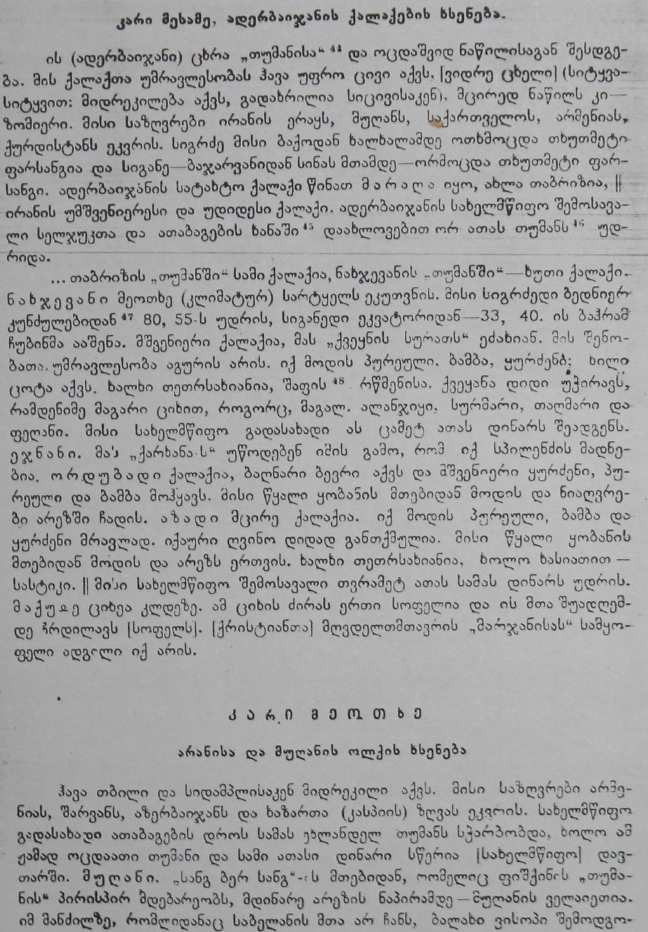 კარი მესამე, ადერბაიჯანის ქალაქების ხსენება.
ის (ადერბაიჯანი) ცხრა „თუმანისა“ ⁴⁴ და ოცდაშვიდ ნაწილისაგან შესდგე-
ბა. მის ქალაქთა უმრავლესობას ჰავა უფრო ცივი აქვს, [ვიდრე ცხელი] (სიტყვა-
სიტყვით: მიდრეკილება აქვს, გადახრილია სიცივისაკენ), მცირედ ნაწილს კი—
ზომიერი. მისი საზღვრები ირანის ერაყს, მუღანს, საქართველოს, არმენიას,
ქურდისტანს ეკვრის. სიგრძე მისი ბაქოდან ხალხალამდე ოთხმოცდა თხუთმეტი
ფარსანგია და სიგანე—ბაჯარვანიდან სინას მთამდე—ორმოცდა თხუთმეტი ფარ-
სანგი. ადერბაიჯანის სატახტო ქალაქი წინათ მარაღა იყო, ახლა თაბრიზია, ||
ირანის უმშვენიერესი და უდიდესი ქალაქი. ადერბაიჯანის სახელმწიფო შემოსავა-
ლი სელჯუკთა და ათაბაგების ხანაში ⁴⁵ დაახლოვებით ორ ათას თუმანს ⁴⁶ უდ-
რიდა.
... თაბრიზის „თუმანში“ სამი ქალაქია, ნახჯევანის „თუმანში“—ხუთი ქალაქი.
ნახჯევანი მეოთხე (კლიმატურ) სარტყელს ეკუთვნის. მისი სიგრძედი ბედნიერ
კუნძულებიდან ⁴⁷ 80, 55-ს უდრის, სიგანედი ეკვატორიდან—33, 40. ის ბაჰრამ
ჩუბინმა ააშენა. მშვენიერი ქალაქია, მას „ქვეყნის სურათს“ ეძახიან. მის შენო-
ბათა უმრავლესობა აგურის არის. იქ მოდის პურეული, ბამბა, ყურძენი; ხილი
ცოტა აქვს. ხალხი თეთრსახიანია, შაფის ⁴⁸ რწმენისა. ქვეყანა დიდი უჭირავს,
რამდენიმე მაგარი ციხით, როგორც, მაგალ. ალანჯიყი, სურმარი, თაღმარი და
ფეღანი. მისი სახელმწიფო გადასახადი ას ცამეტ ათას დინარს შეადგენს.
ეჯნანი. მას „ქარხანას“ უწოდებენ იმის გამო, რომ იქ სპილენძის მადნე-
ბია. ორდუბადი ქალაქია, ბაღნარი ბევრი აქვს და მშვენიერი ყურძენი, პუ-
რეული და ბამბა მოჰყავს. მისი წყალი ყობანის მთებიდან მოდის და ნიაღვრე-
ბი არეზში ჩადის. აზადი მცირე ქალაქია. იქ მოდის პურეული, ბამბა და
ყურძენი მრავლად. იქაური ღვინო დიდად განთქმულია. მისი წყალი ყობანის
მთებიდან მოდის და არეზს ერთვის. ხალხი თეთრსახიანია, ხოლო ხასიათით—
სასტიკი. || მისი სახელმწიფო შემოსავალი თვრამეტ ათას სამას დინარს უდრის.
მაქუჲე ციხეა კლდეზე. ამ ციხის ძირას ერთი სოფელია და ის მთა შუადღემ-
დე ჩრდილავს [სოფელს]. [ქრისტიანთა] მღვდელთმთავრის „მარჯანისას“ სამყო-
ფელი ადგილი იქ არის.
კარი მეოთხე
არანისა და მუღანის ოლქის ხსენება
ჰავა თბილი და სიდამპლისაკენ მიდრეკილი აქვს. მისი საზღვრები არმე-
ნიას, შარვანს, აზერბაიჯანს და ხაზართა (კასპიის) ზღვას ეკვრის. სახელმწიფო
გადასახადი ათაბაგების დროს სამას ეხლანდელ თუმანს სჭარბობდა, ხოლო ამ
ჟამად ოცდაათი თუმანი და სამი ათასი დინარი სწერია [სახელმწიფო] დავ-
თარში. მუღანი. „სანგ ბერ სანგ“-ის მთებიდან, რომელიც ფიშქინის „თუმა-
ნის“ პირისპირ მდებარეობს, მდინარე არეზის ნაპირამდე—მუღანის ველაიეთია.
იმ მანძილზე, რომლიდანაც საბელანის მთა არ ჩანს, ბალახი ვისოპი შემოდგო-